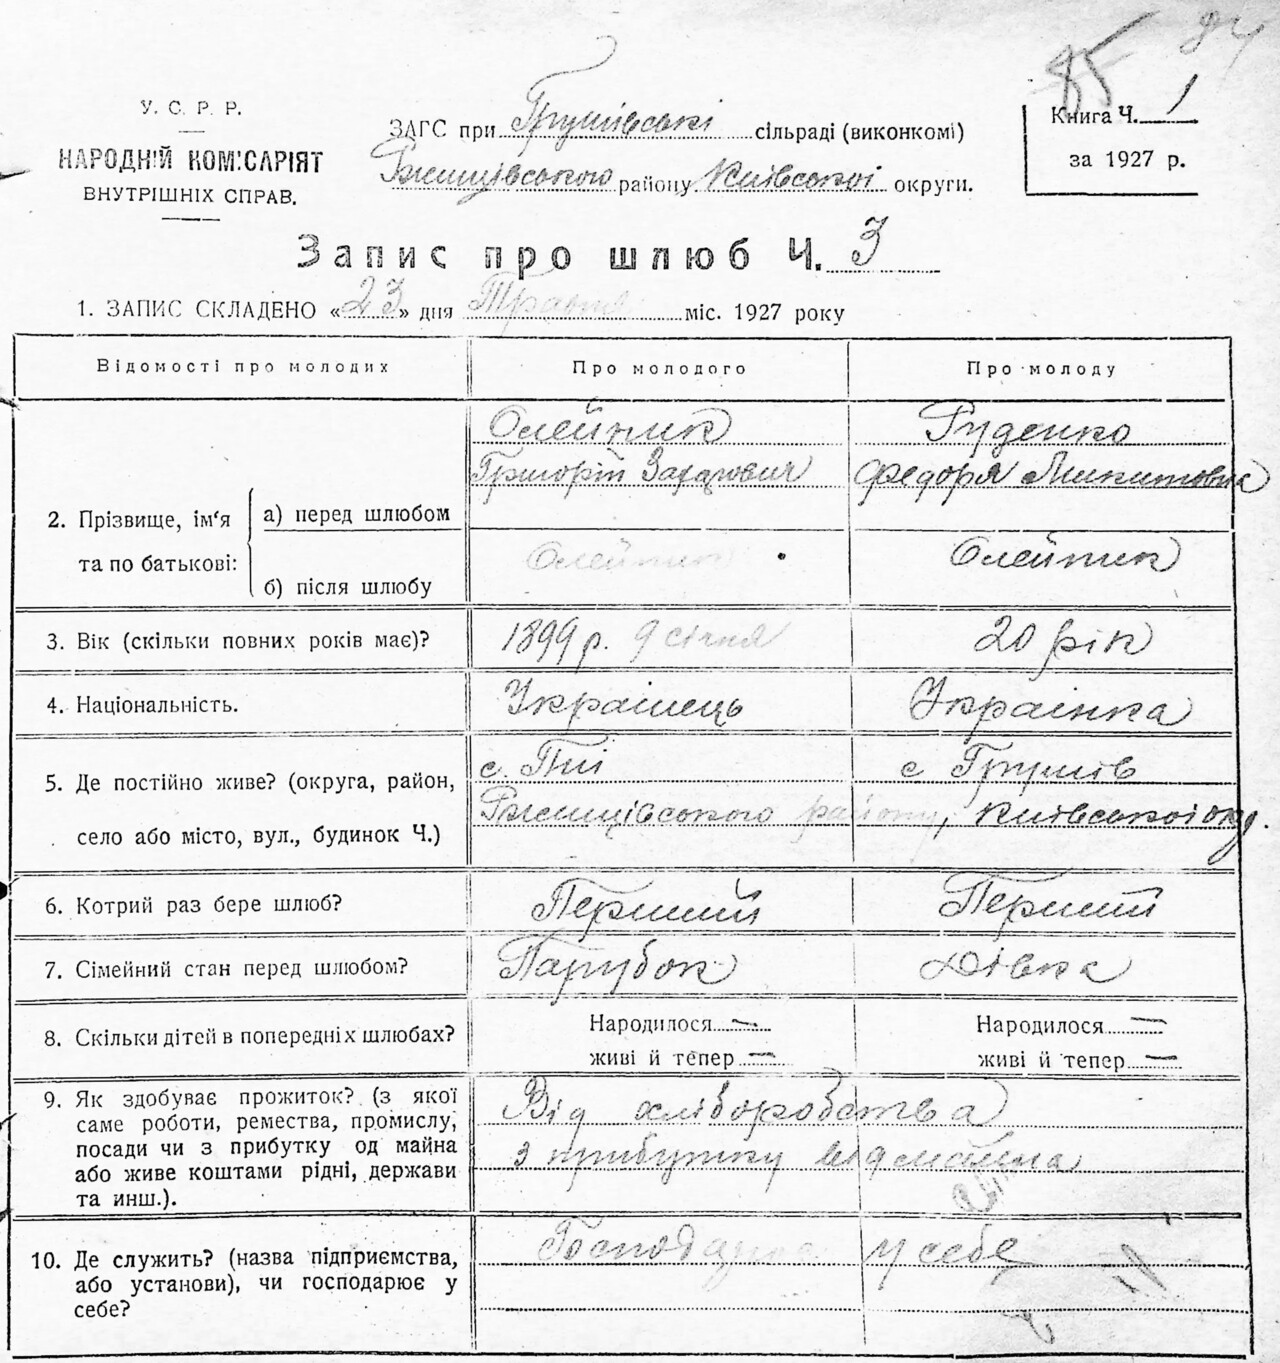 85 84
У. С. Р. Р.
НАРОДНІЙ КОМІСАРІЯТ
ВНУТРІШНІХ СПРАВ.
ЗАГС при Грушівські сільраді (виконкомі)
Ржищівського району Київської округи.
Книга Ч. 1
за 1927 р.
Запис про шлюб Ч. 3
1. ЗАПИС СКЛАДЕНО «23» дня Травня міс. 1927 року
Відомості про молодих Про молодого Про молоду
Олейник Руденко
Григорій Захарович Федоря Микитовна
2. Прізвище, ім'я та по батькові:
а) перед шлюбом
б) після шлюбу
Олейник Олейник
3. Вік (скільки повних років має)? 1899 р. 9 січня 20 рік
4. Національність. Украінець Украінка
5. Де постійно живе? (округа, район,
село або місто, вул., будинок Ч.)
с. Пії с Грушів
Ржищівського району, Київськоі окр.
6. Котрий раз бере шлюб? Перший Перший
7. Сімейний стан перед шлюбом? Парубок Дівка
8. Скільки дітей в попередніх шлюбах?
Народилося — Народилося —
живі й тепер — живі й тепер —
9. Як здобуває прожиток? (з якої
саме роботи, ремества, промислу,
посади чи з прибутку од майна
або живе коштами рідні, держави
та инш.).
Від хліборобства
з прибутку від майна
10. Де служить? (назва підприємства,
або установи), чи господарює у
себе?
Господарює у себе